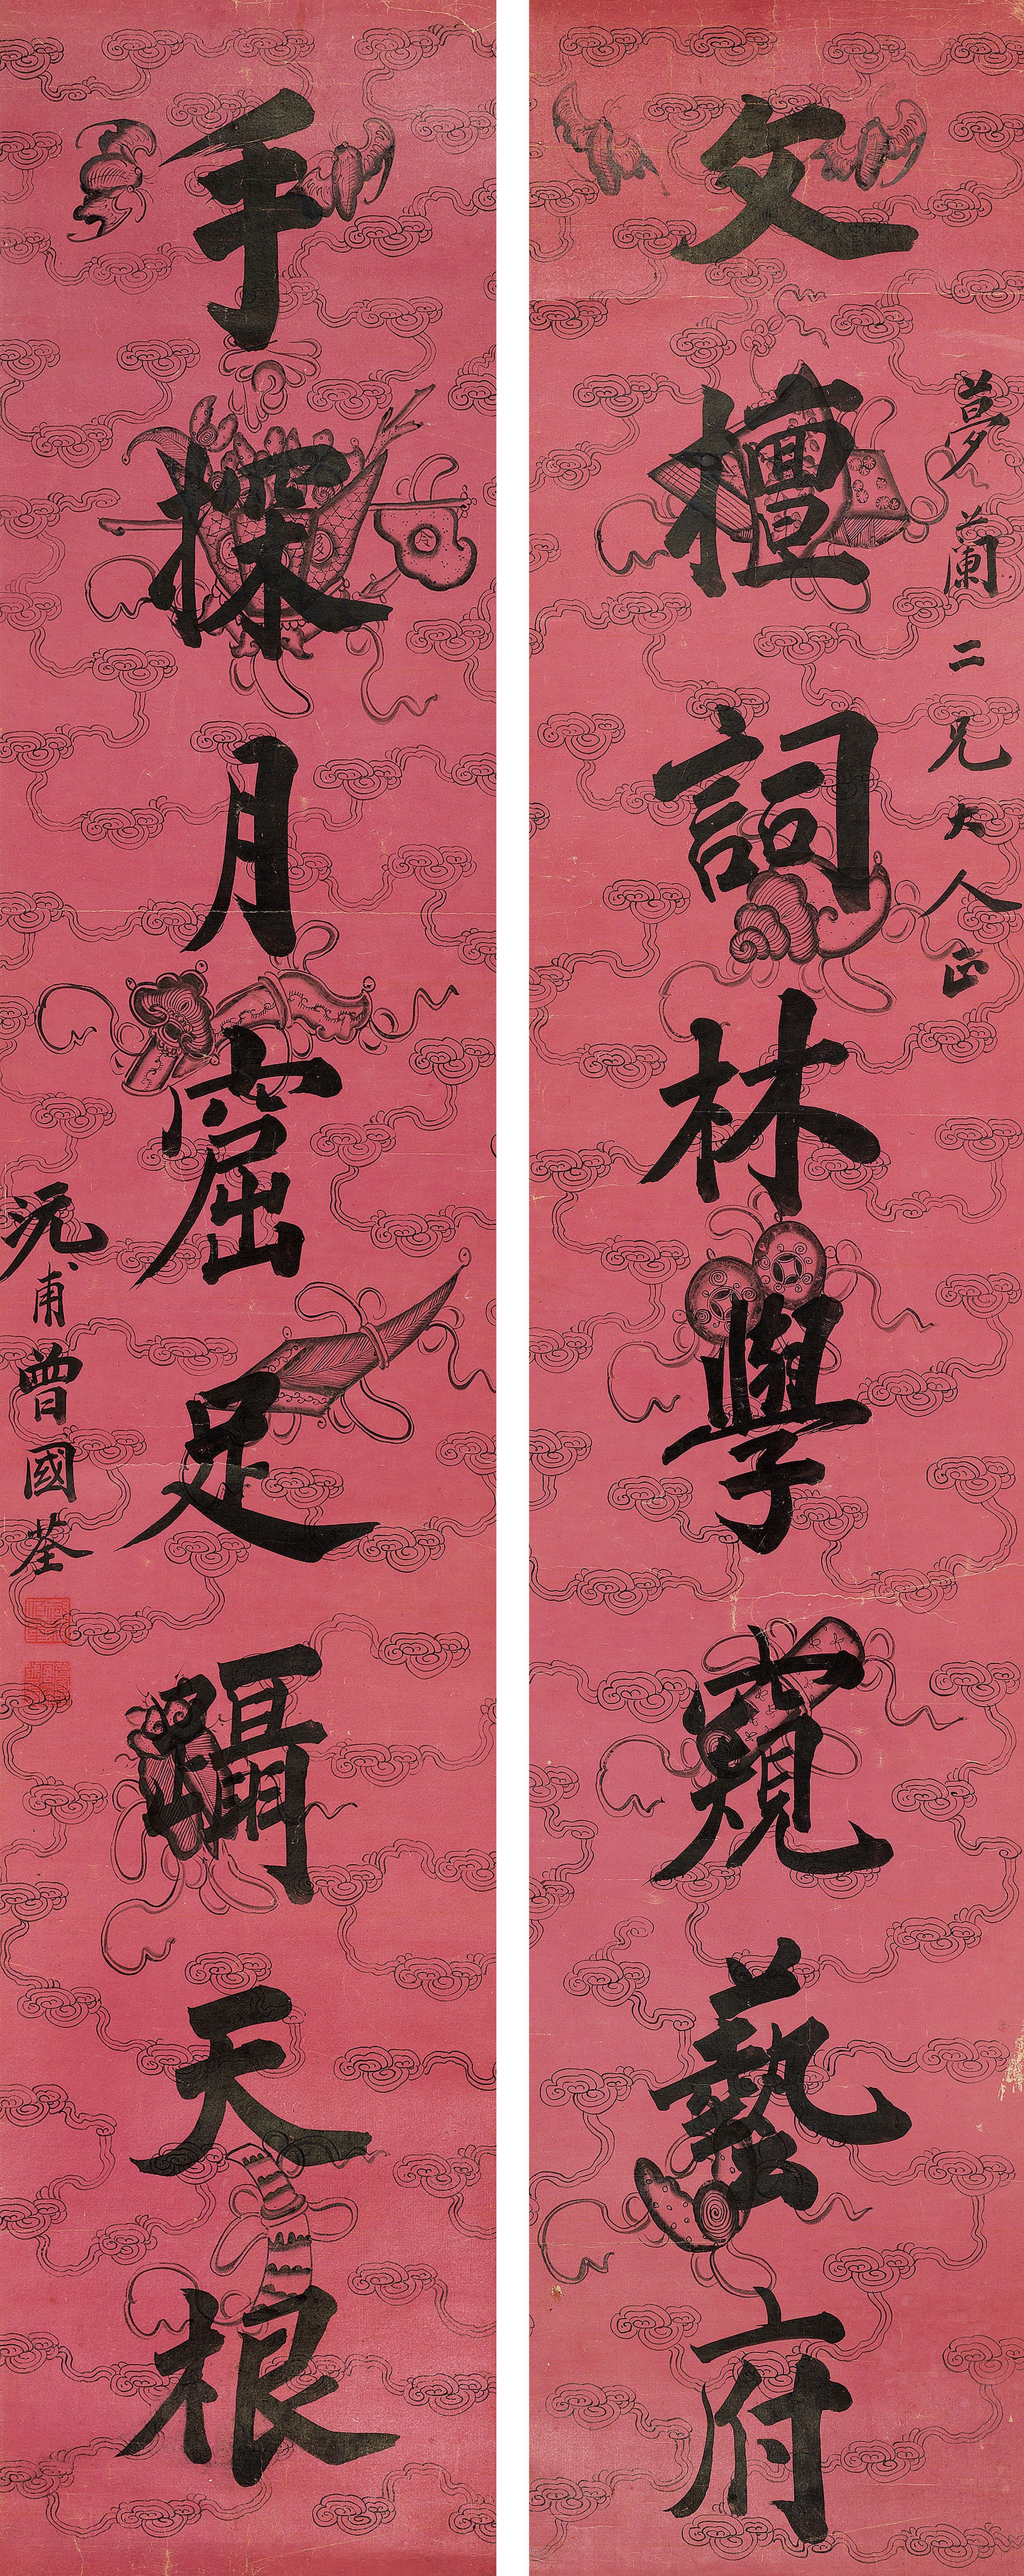 夢蘭二兄大人正
文檀詞林學窺藝府
手探月窟足躡天根
沅甫曾國荃